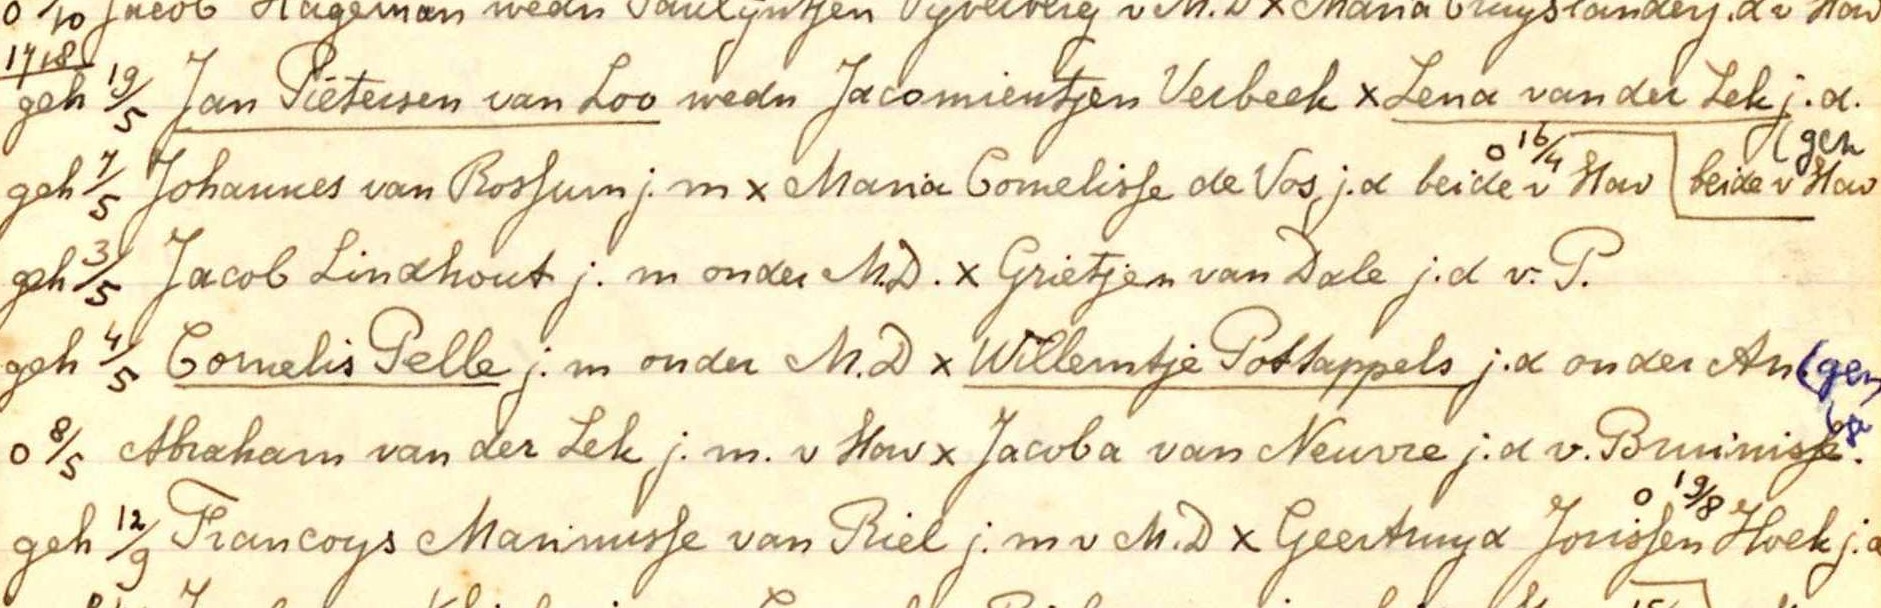 0 /10 Jacob Hageman wedn Paulÿntjen Vyverberg v M.D x Maria Cruyslander j.d v Hav
1718
geh 19/5 Jan Pietersen van Loo wedn Jacomientjen Verbeek x Lena van der Lek j.d.
0 16/4 (geh
geh 7/5 Johannes van Rossum j. m x Maria Cornelisse de Vos j.d beide v Hav beide v Hav
geh 3/5 Jacob Lindhout j. m onder M.D. x Grietjen van Dale j.d v. P.
geh 4/5 Cornelis Pelle j. m onder M.D x Willemtje Pottappels j.d onder An (gen
0 8/5 Abraham van der Lek j. m. v Hav x Jacoba van Neuvre j.d v. Bruinisse.
0 19/8
geh 12/9 Francoys Marinusse van Riel j. m v M.D x Geertruyd Jorissen Hoek j.d